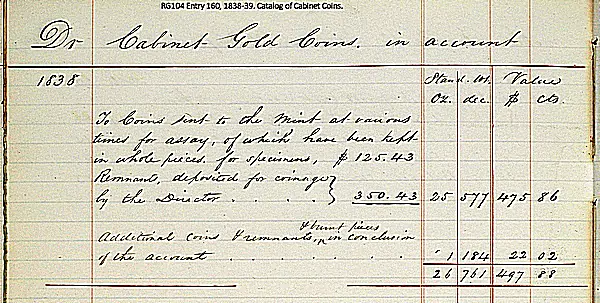 RG104 Entry 160, 1838-39. Catalog of Cabinet Coins.
Dr Cabinet Gold Coins. in account
1838 Stand. Wt. Value
Oz. dec. $ cts.
To Coins sent to the Mint at various
times for assay, of which have been kept
in whole pieces, for specimens, $ 125.43
Remnant, deposited for coinage }
by the Director . . . . . 350.43 25 577 475 86
& burnt pieces
Additional coins & remnants, ^ in conclusion
of the account . . . . . . . . 1 184 22 02
26 761 497 88